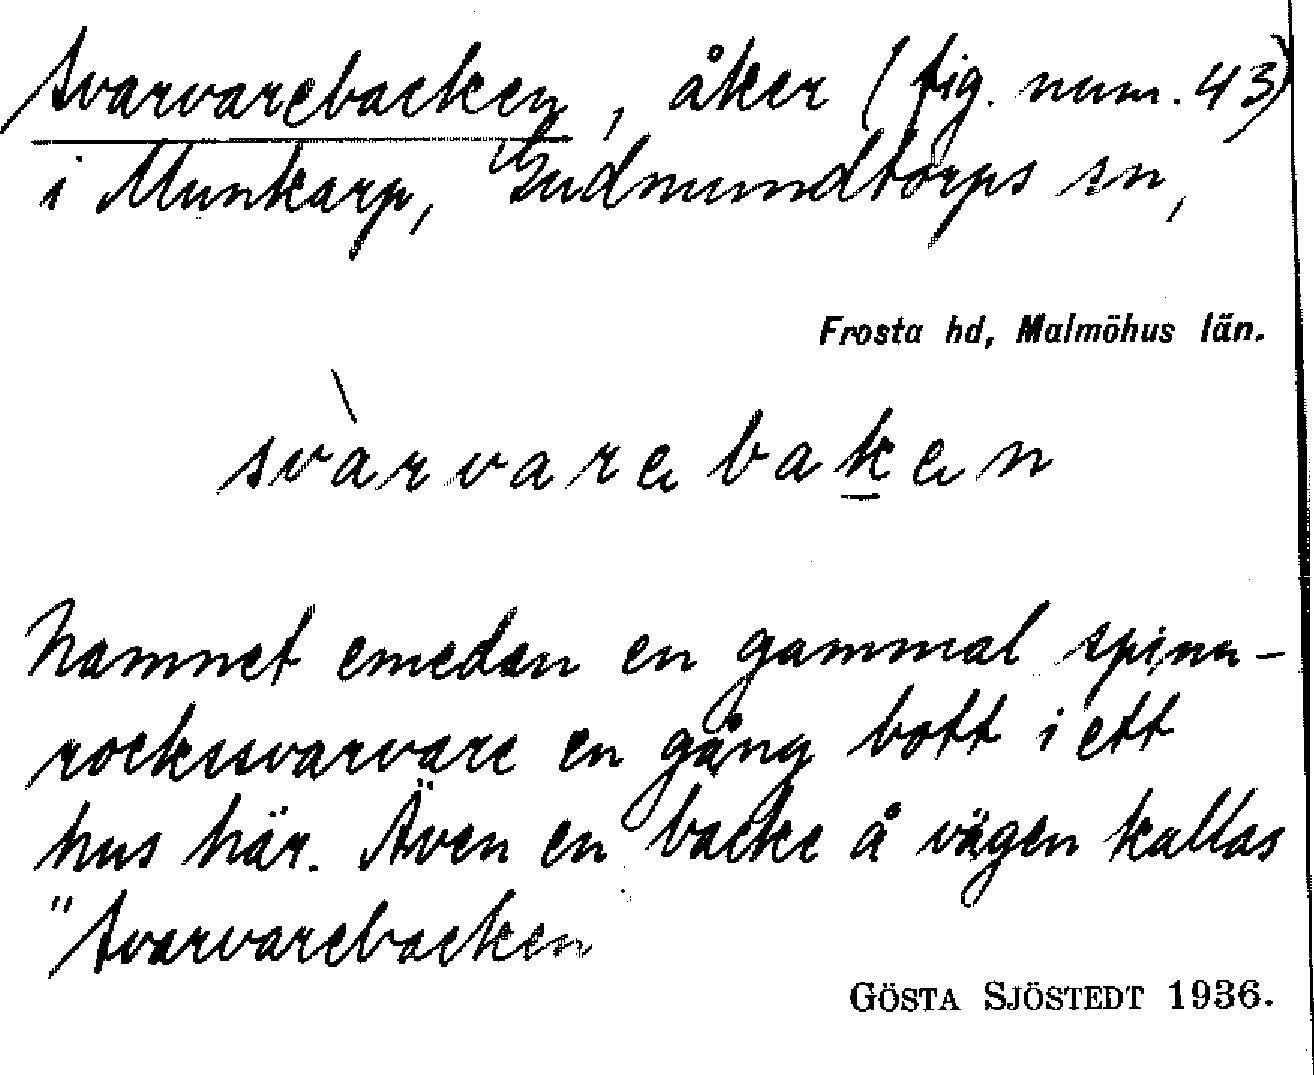 Svarvarebacken, åker (fig. num. 43)
i Munkarp, Gudmundtorps sn,
Frosta hd, Malmöhus län.
svàrvarebaken
Namnet emedan en gammal spinn-
rockssvarvare en gång bott i ett
hus här. Även en backe å vägen kallas
"Svarvarebacken
GÖSTA SJÖSTEDT 1936.